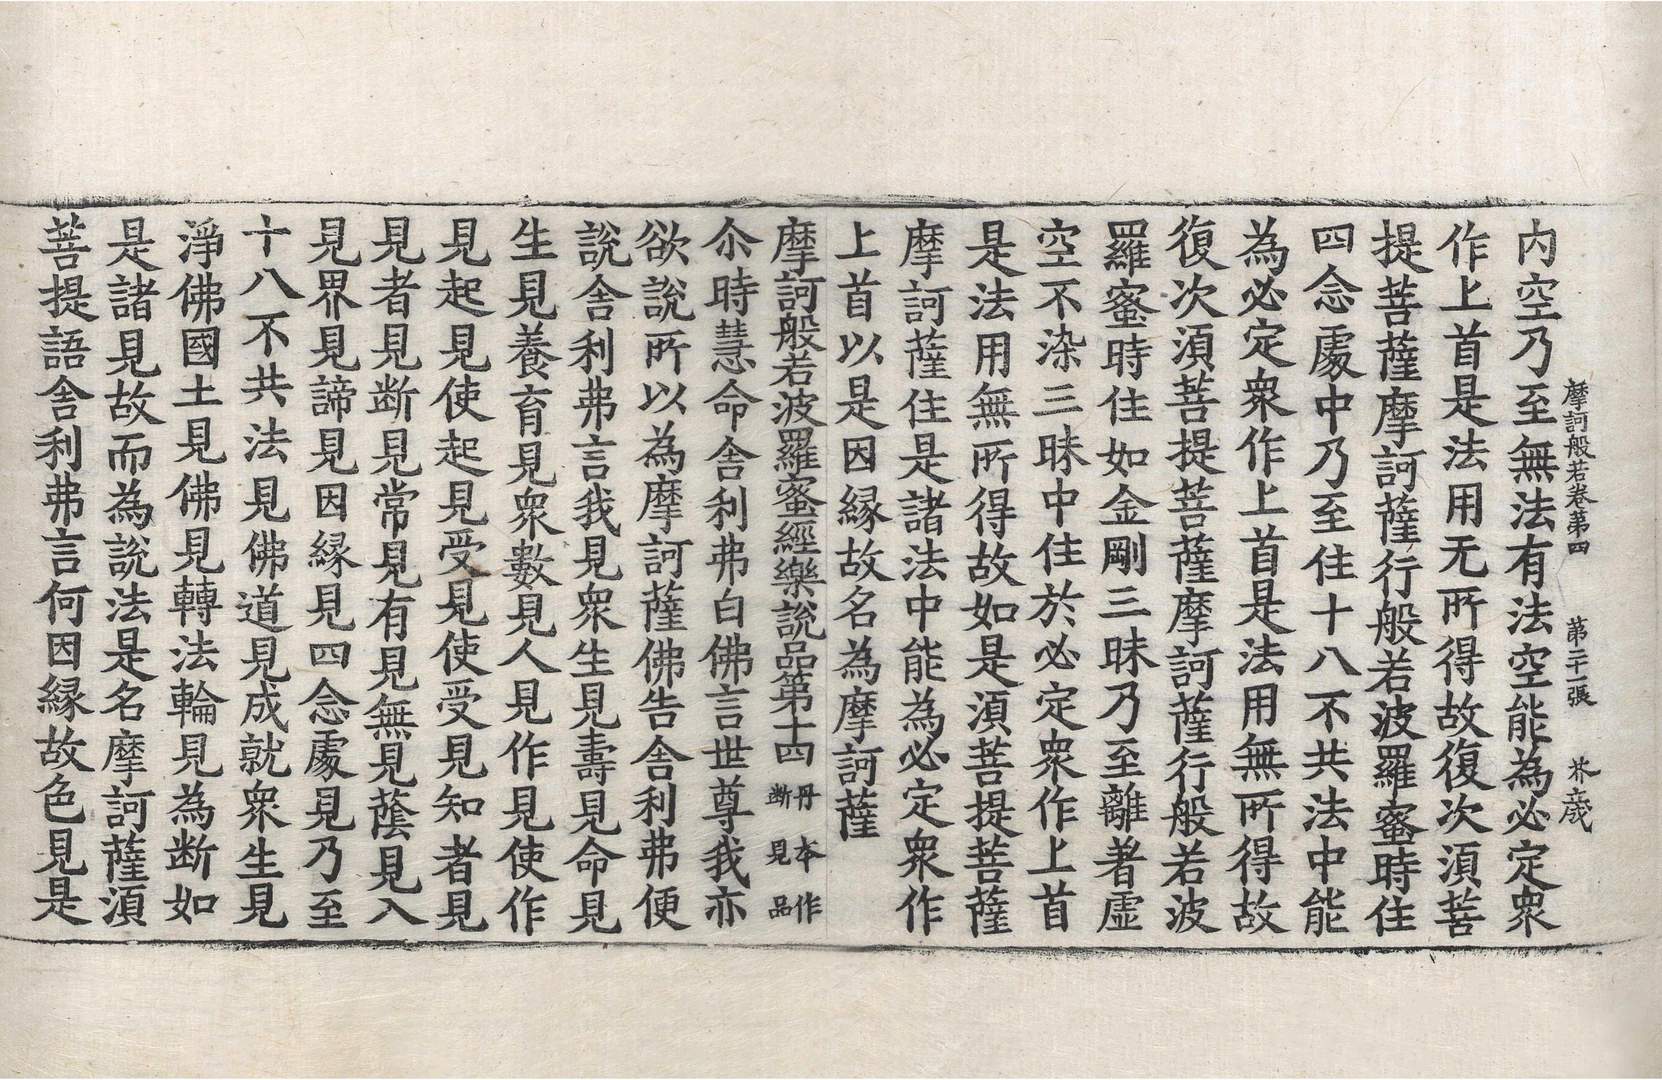 摩訶般若卷第四 第二十一張 芥
内空乃至無法有法空能為必定衆
作上首是法用无所得故復次湏菩
提菩薩摩訶薩行般若波羅蜜時住
四念處中乃至住十八不共法中能
為必定衆作上首是法用無所得故
復次湏菩提菩薩摩訶薩行般若波
羅蜜時住如金剛三昧乃至離著虛
空不染三昧中住於必定衆作上首
是法用無所得故如是湏菩提菩薩
摩訶薩住是諸法中能為必定衆作
上首以是因縁故名為摩訶薩
摩訶般若波羅蜜經樂說品第十四 丹本作斷見品
尒時慧命舍利弗白佛言世尊我亦
欲說所以為摩訶薩佛告舍利弗便
說舍利弗言我見衆生見壽見命見
生見養育見衆數見人見作見使作
見起見使起見受見使受見知者見
見者見断見常見有見無見蔭見入
見界見諦見因縁見四念處見乃至
十八不共法見佛道見成就衆生見
淨佛國土見佛見轉法輪見為断如
是諸見故而為說法是名摩訶薩湏
菩提語舍利弗言何因縁故色見是